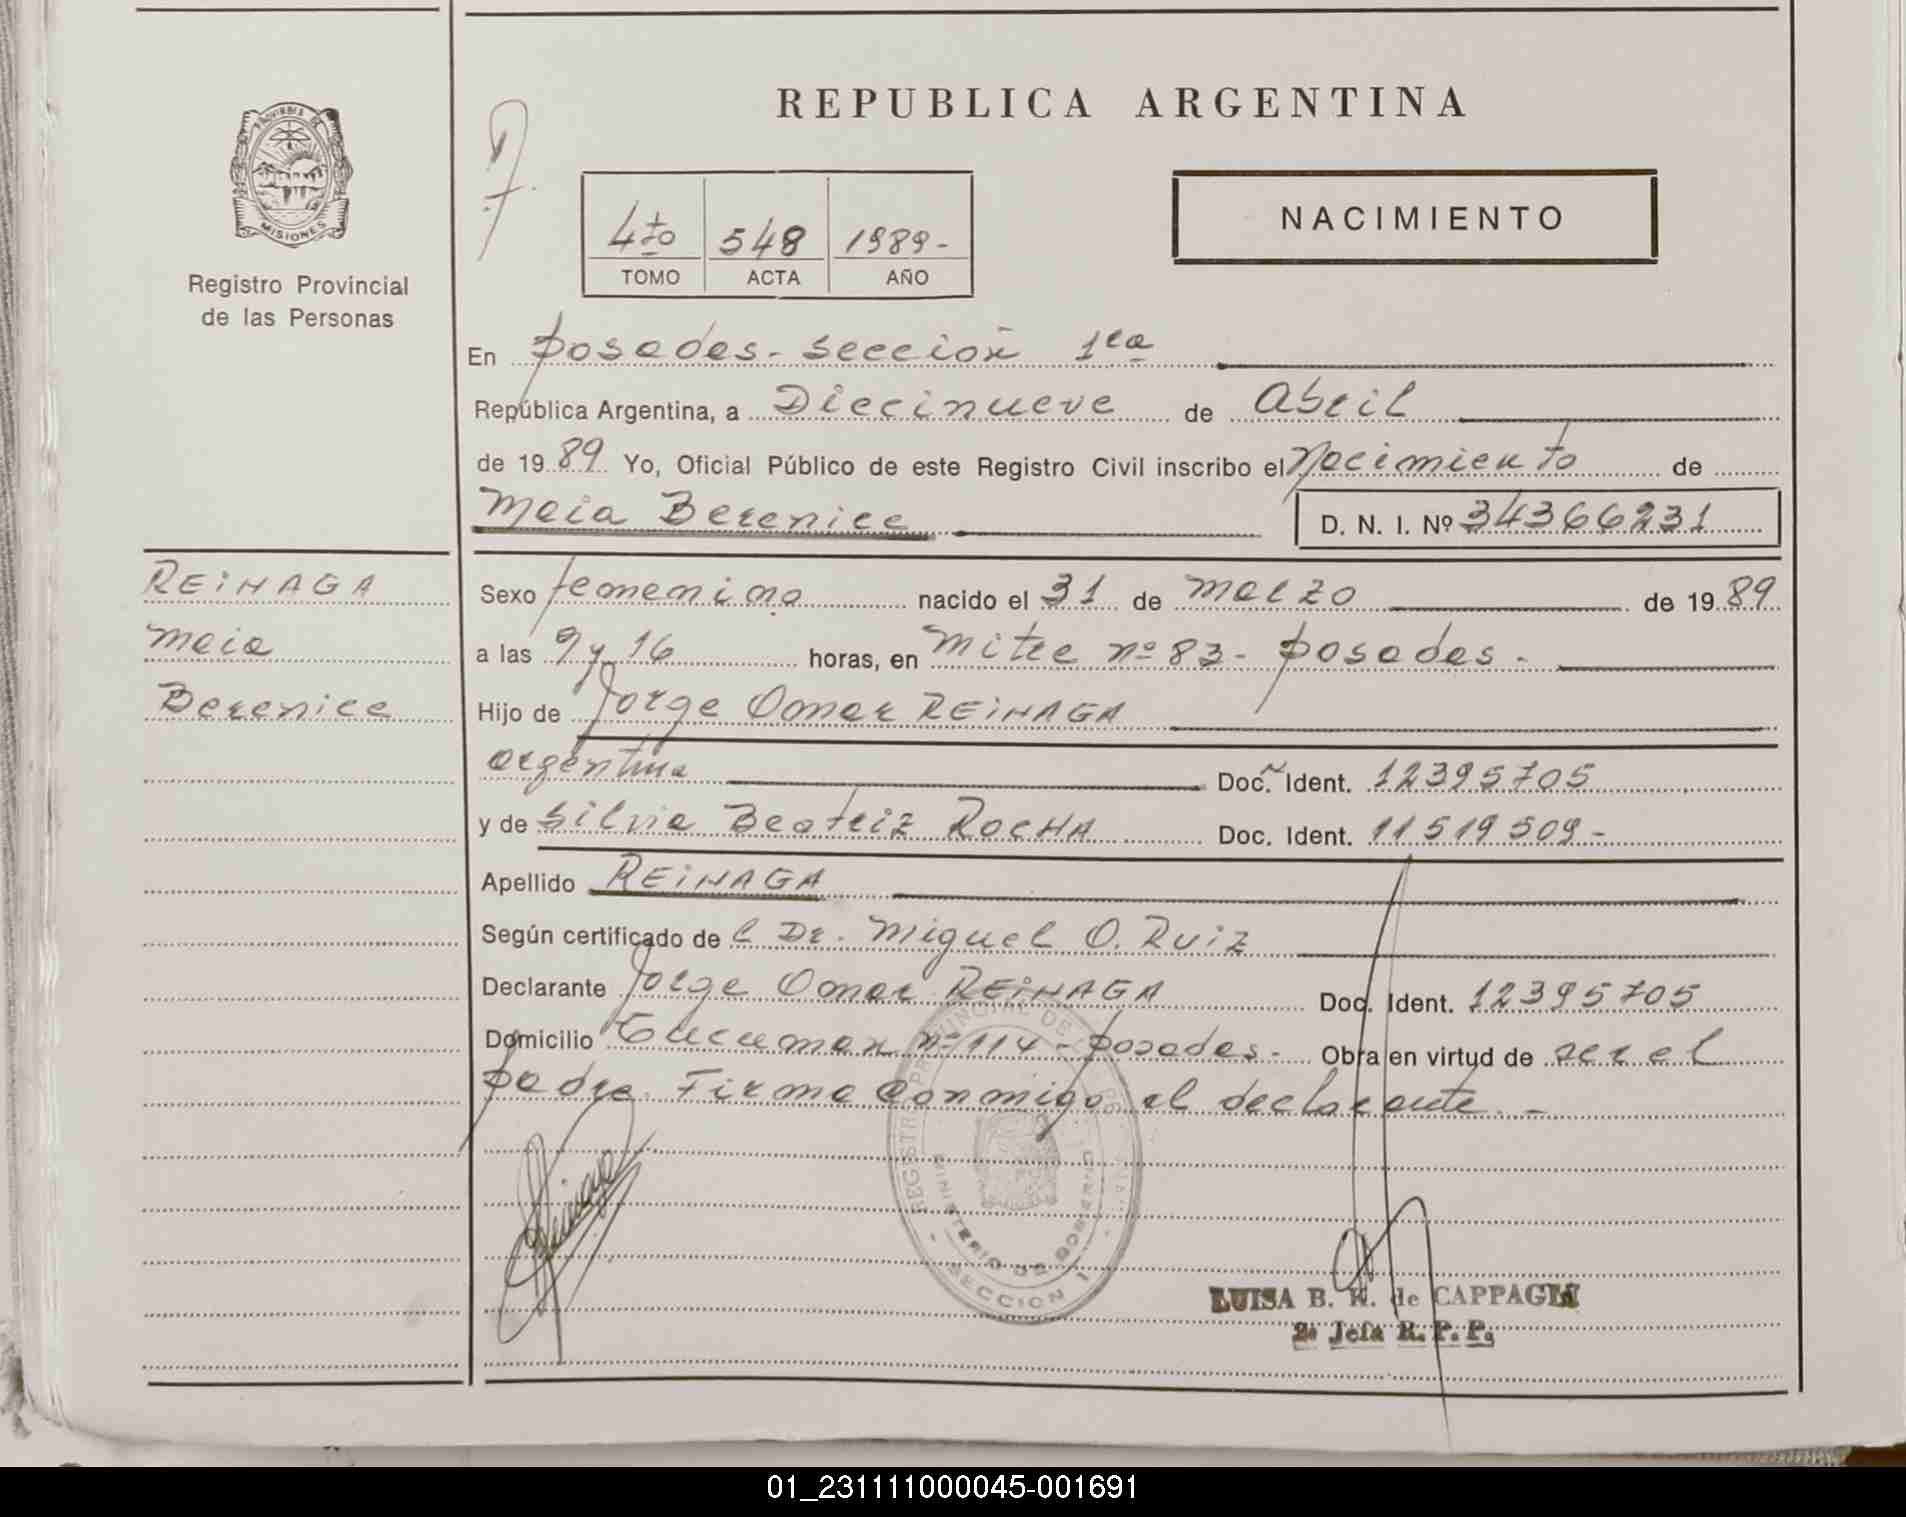 REPUBLICA ARGENTINA
PROVINCIA DE
MISIONES
Registro Provincial
de las Personas
4to 548 1989-
TOMO ACTA AÑO
NACIMIENTO
En Posadas- Sección 1ra
República Argentina, a Diecinueve de Abril
de 1989 Yo, Oficial Público de este Registro Civil inscribo el Nacimiento de
Maia Berenice D. N. I. Nº 34366231
REINAGA
Maia
Berenice
Sexo femenino nacido el 31 de Marzo de 1989
a las 9 y 16 horas, en Mitre nº 83- Posadas-
Hijo de Jorge Omar REINAGA
argentina Doc. Ident. 12395705
y de Silvia Beatriz ROCHA Doc. Ident. 11519509-
Apellido REINAGA
Según certificado de l Dr. Miguel O. Ruiz
Declarante Jorge Omar REINAGA Doc. Ident. 12395705
Domicilio Tucuman nº 114- Posadas- Obra en virtud de ser el
padre. Firma conmigo el declarante.-
REGISTRO PROVINCIAL DE
MINISTERIO DE GOBIERNO
SECCION 1
LUISA B. K. de CAPPAGLI
2ª Jefa R. P. P.
01_231111000045-001691